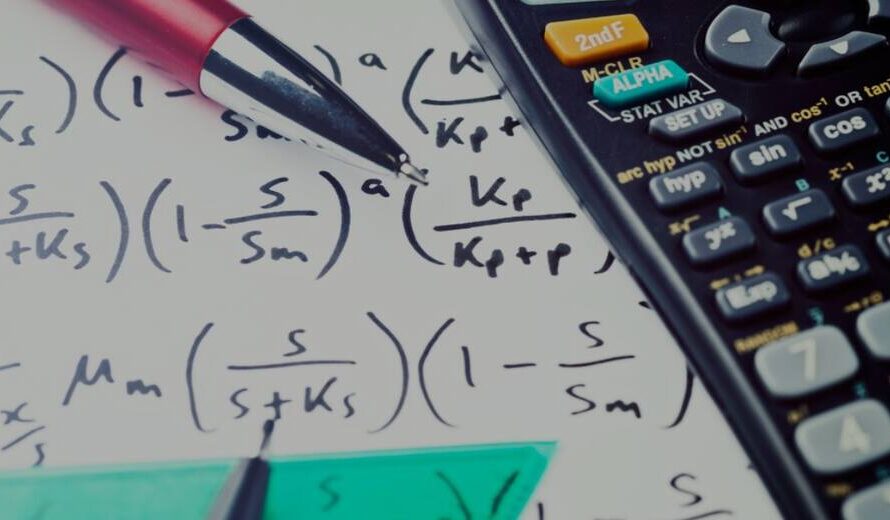 Ks ) ( 1 - Sm ) a ( K / Kp +
S / + Ks ) ( 1 - S / Sm ) a ( Kp / Kp + P )
x/s μm ( S / S + Ks ) ( 1 - S / Sm )
S
S
2ndF
M-CLR
ALPHA
STAT VAR
SET UP
arc hyp NOT sin⁻¹ AND cos⁻¹ OR tan
hyp sin cos
A B x⁻¹ C
yˣ √ x²
d/c
Exp a b/c
RANDOM
7
4